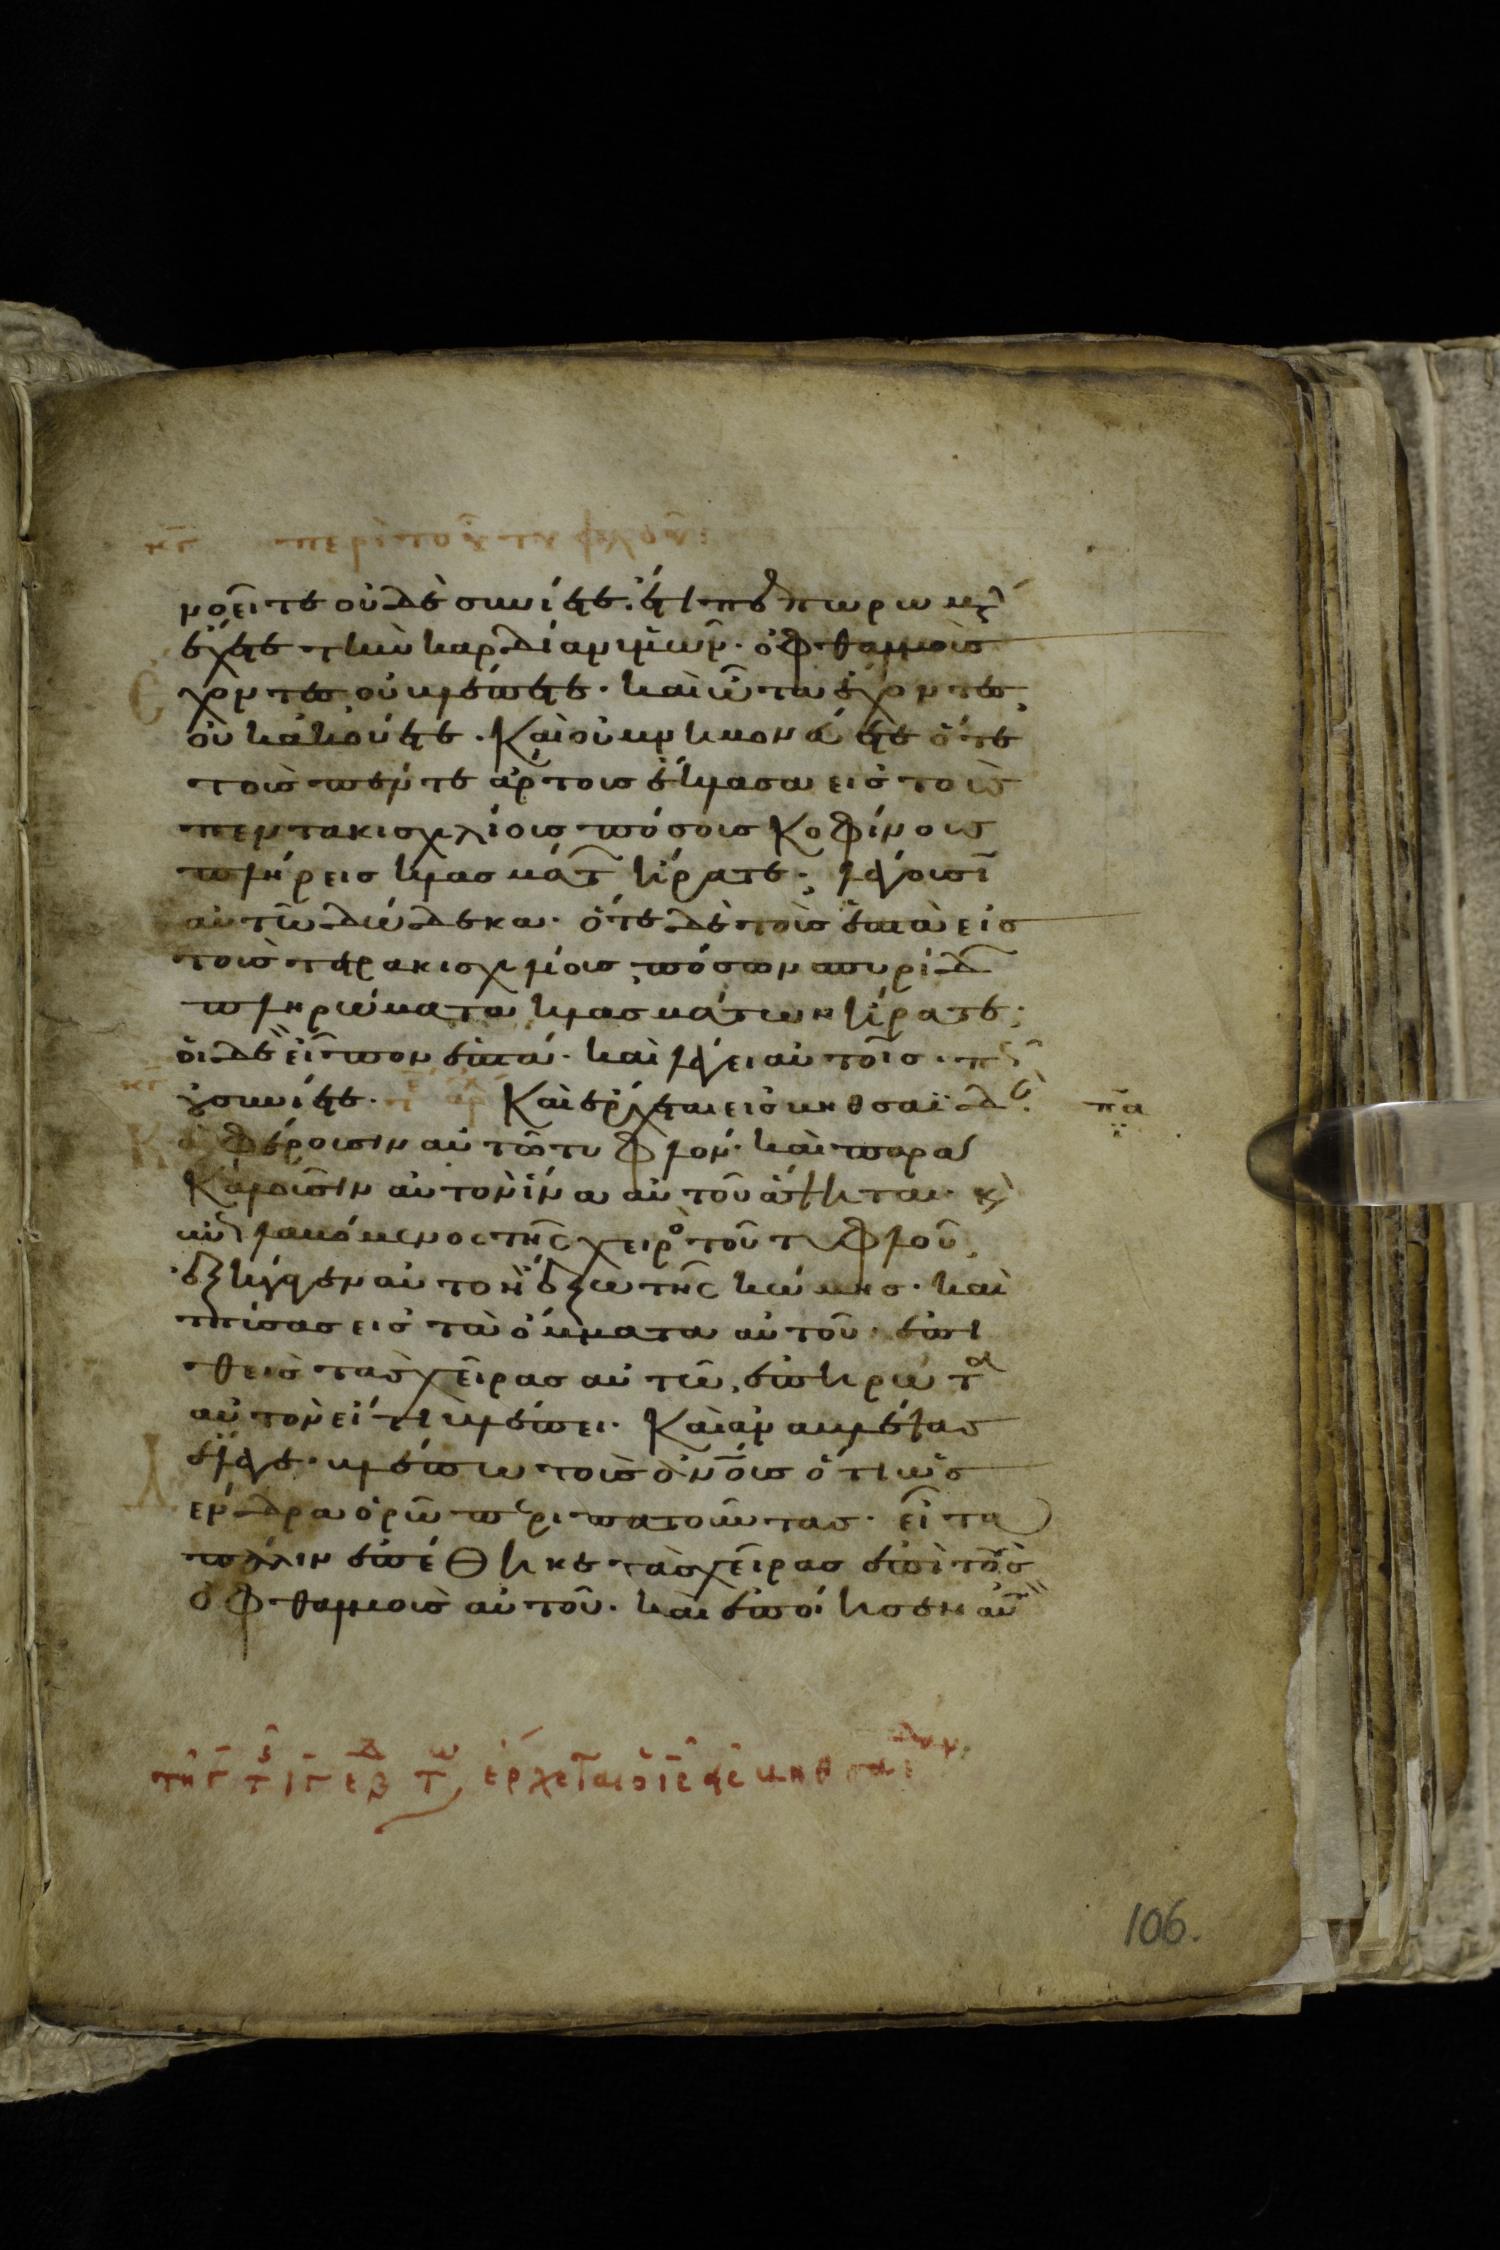 κζ περι του τυφλου:
νοεῖτε οὐδὲ συνίετε. ἔτι πεπωρωμέν
ἔχετε τὴν καρδίαν ὑμῶν· ὀφθαλμοὺς
ἔχοντες οὐ βλέπετε· καὶ ὦτα ἔχοντες,
οὐκ ἀκούετε· Καὶ οὐ μνημονεύετε ὅτε
τοὺς πέντε ἄρτους ἔκλασα εἰς τοὺς
πεντακισχιλίους πόσους κοφίνους
πλήρεις κλασμάτ ἤρατε; λέγουσι
αὐτῶ δώδεκα· ὅτε δὲ τοὺς ἑπτὰ εἰς
τοὺς τετρακισχιλίους, πόσων σπυρίδ
πληρώματα κλασμάτων ἤρατε;
οἱ δὲ εἶπον ἑπτά· καὶ λέγει αὐτοῖς· πῶς
οὐ συνίετε· Καὶ ἔρχεται εἰς βηθσαϊδά·
πα
καὶ φέρουσιν αὐτῶ τυφλόν· καὶ παρα
καλοῦσιν αὐτὸν ἵνα αὐτοῦ ἅψηται· κ
ἐπιλαβόμενος τῆς χειρὸ τοῦ τυφλοῦ,
ἐξήγαγεν αὐτὸν ἔξω τῆς κώμης· καὶ
πτύσας εἰς τὰ ὄμματα αὐτοῦ· ἐπι
θεὶς τὰς χεῖρας αὐτῶ, ἐπηρώτα
αὐτὸν εἴ τι βλέπει· Καὶ ἀναβλέψας
ἔλεγε· βλέπω τοὺς ἀνους ὅτι ὡς
δένδρα ὁρῶ περιπατοῦντας· εἶτα
πάλιν ἐπέθηκε τὰς χεῖρας ἐπὶ τοὺς
ὀφθαλμοὺς αὐτοῦ· καὶ ἐποίησεν αὐτ
ἔρχεται ὁ ις εις βηθσαιδαν
106.